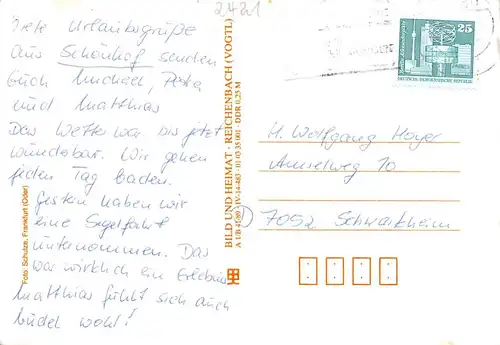 2421
Viele Urlaubsgrüße
aus Schönhof senden
Euch Michael, Petra
und Matthias
Das Wetter war bis jetzt
wunderbar. Wir gehen
jeden Tag baden.
Gestern haben wir
eine Segelfahrt
unternommen. Das
war wirklich ein Erlebnis
Matthias fühlt sich auch
pudel wohl!
Foto: Schulze, Frankfurt (Oder)
BILD UND HEIMAT · REICHENBACH (VOGTL)
A 1/B 41/80 IV-14-483 · 01 03 35 001 · DDR 0,25 M
25
DEUTSCHE DEMOKRATISCHE REPUBLIK
H. Wolfgang Hoyer
Amselweg 10
7052 Schwaikheim